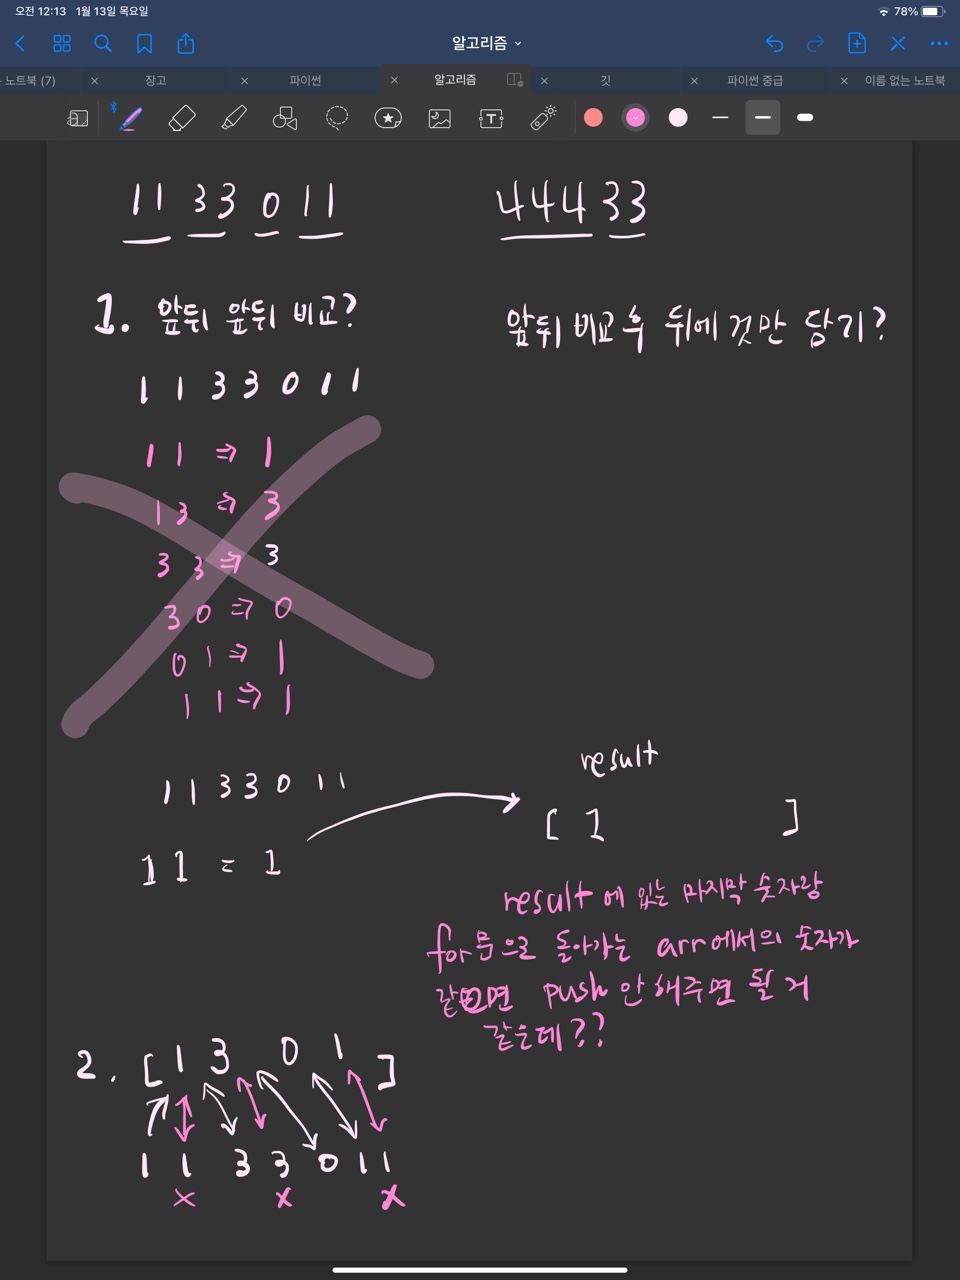 오전 12:13 1월 13일 목요일
78%
알고리즘
노트북 (7)
장고
파이썬
알고리즘
깃
파이썬 중급
이름 없는 노트북
1 1 3 3 0 1 1
4 4 4 3 3
1. 앞뒤 앞뒤 비교?
앞뒤 비교 후 뒤에 것만 담기?
1 1 3 3 0 1 1
1 1 ⇒ 1
1 3 ⇒ 3
3 3 ⇒ 3
3 0 ⇒ 0
0 1 ⇒ 1
1 1 ⇒ 1
result
1 1 3 3 0 1 1
[ 1 ]
1 1 = 1
result에 있는 마지막 숫자랑
for문으로 돌아가는 arr에서의 숫자가
같으면 push 안 해주면 될 거
같은데??
2. [ 1 3 0 1 ]
1 1 3 3 0 1 1
x x x